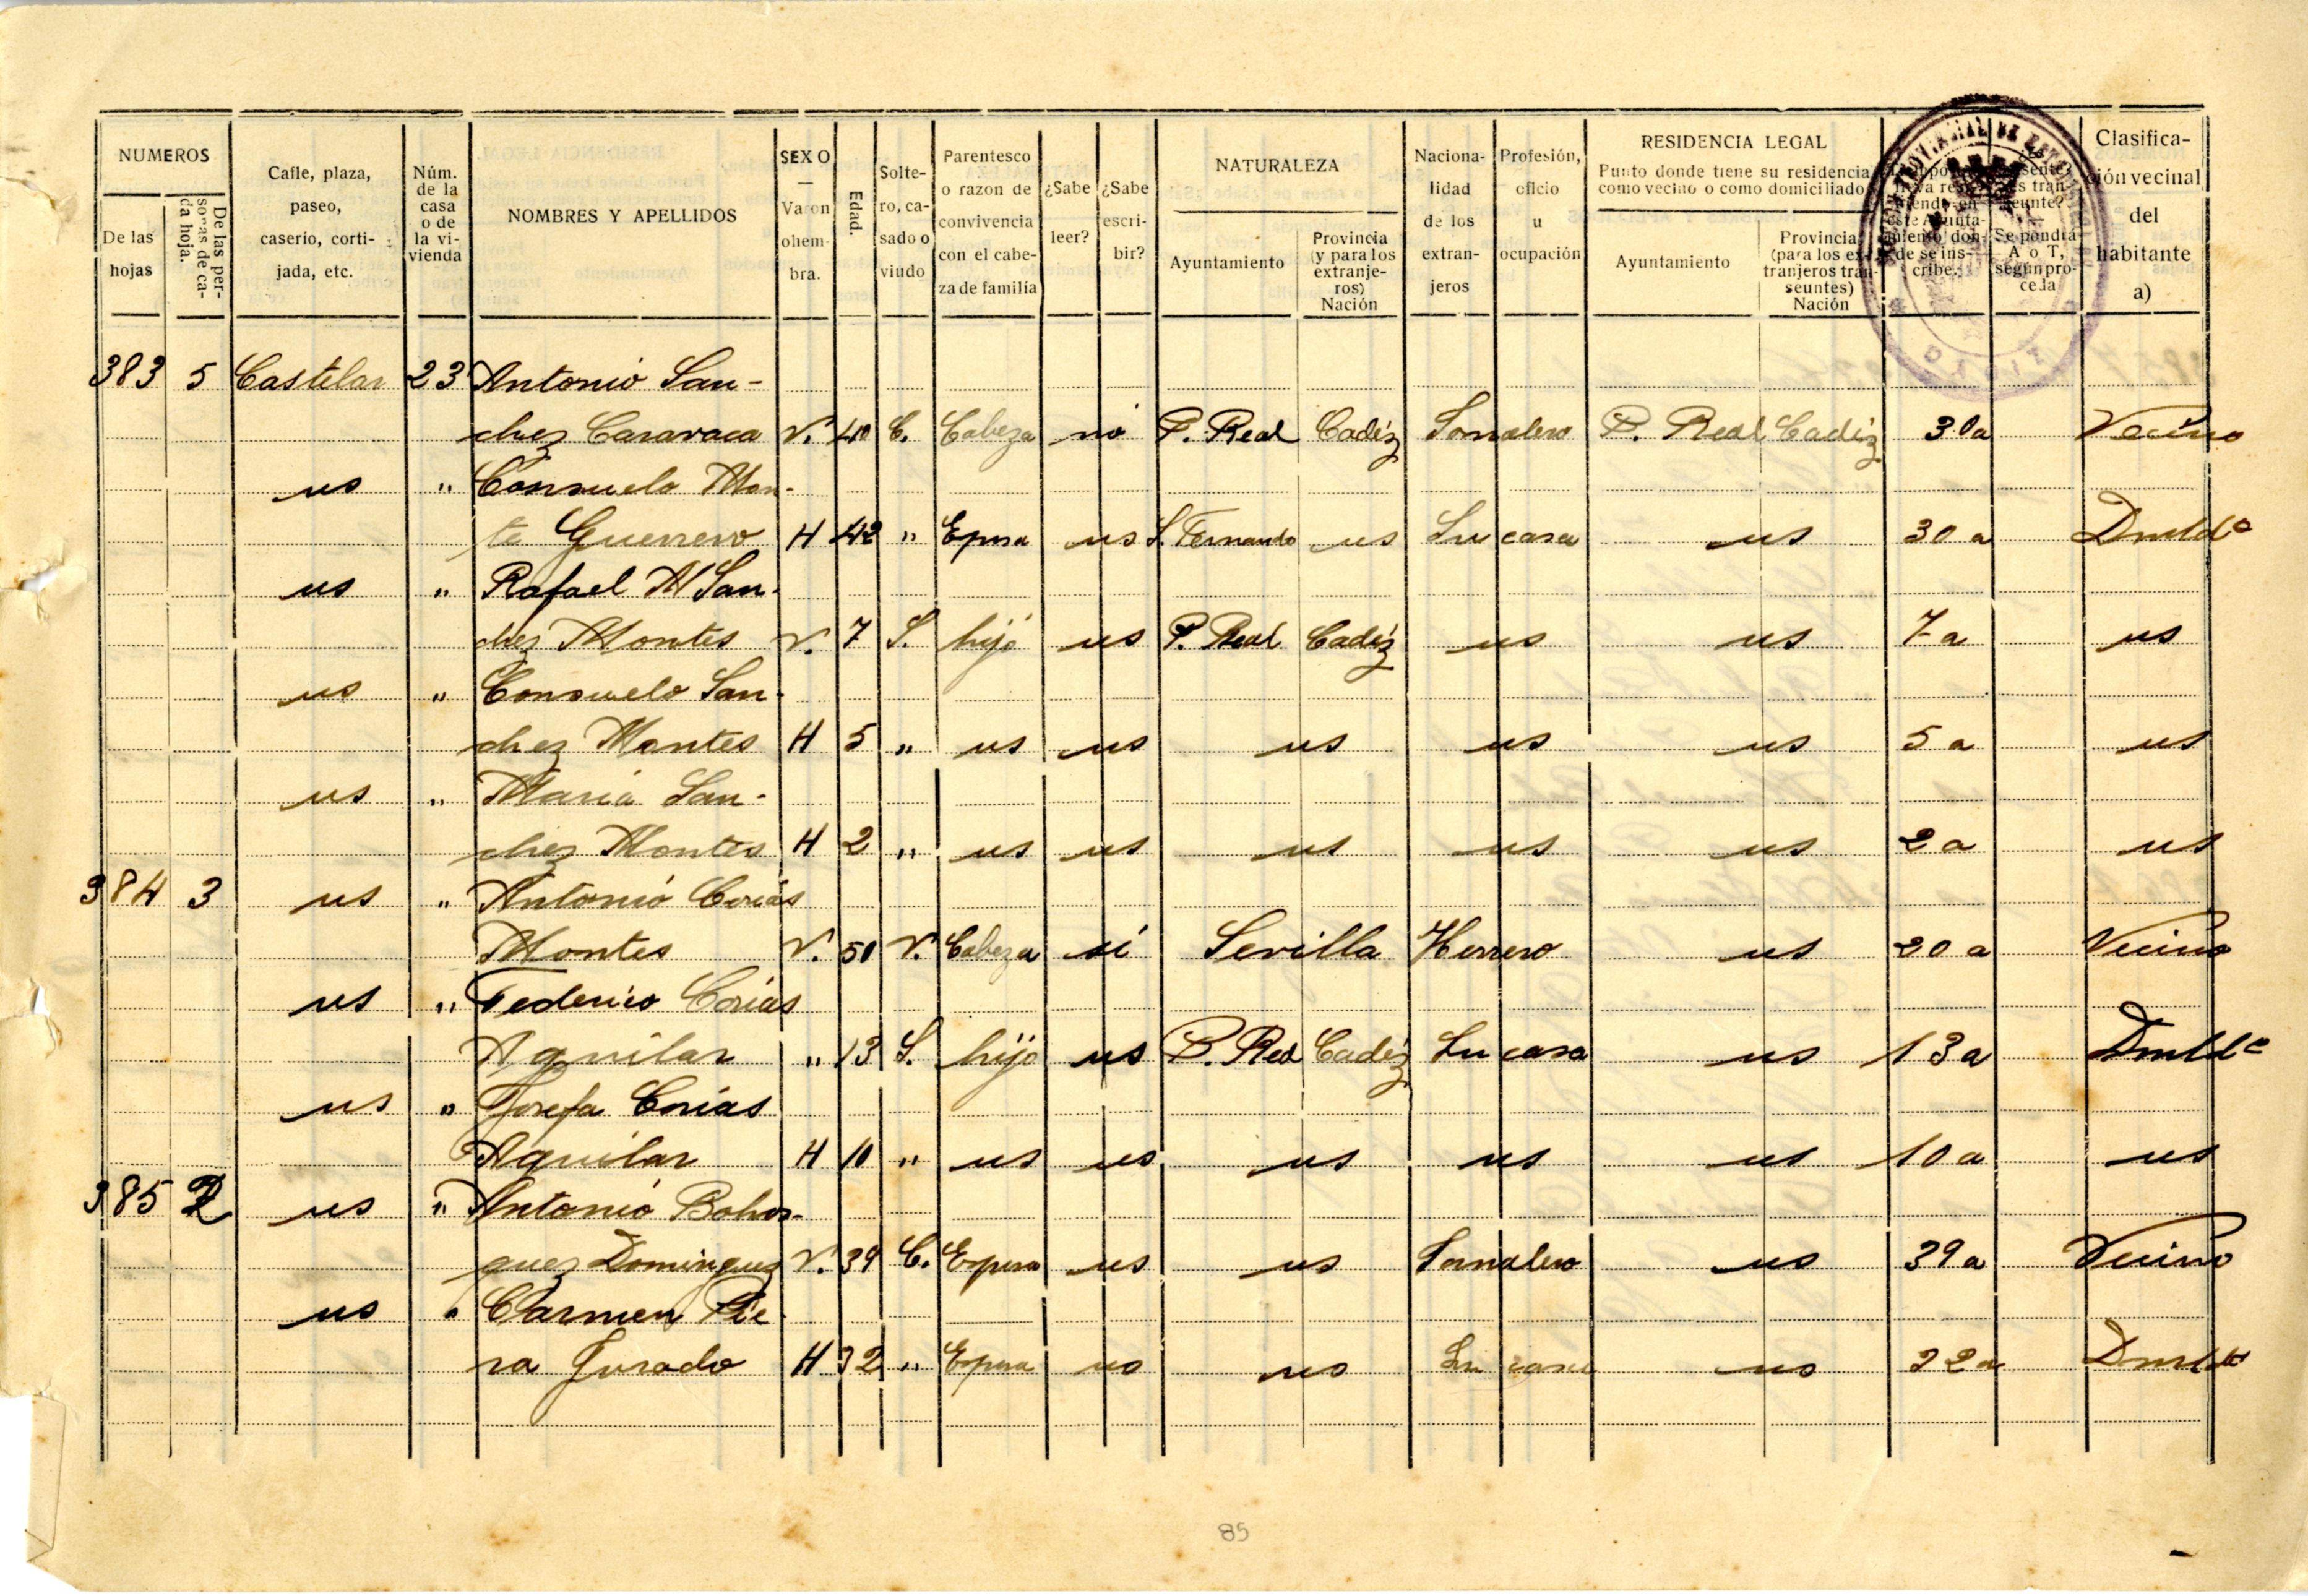 NUMEROS
De las hojas
De las personas de cada hoja.
Calle, plaza, paseo, caserío, cortijada, etc.
Núm. de la casa o de la vivienda
NOMBRES Y APELLIDOS
SEXO — Varon o hembra.
Edad.
Soltero, casado o viudo
Parentesco o razon de convivencia con el cabeza de familia
¿Sabe leer?
¿Sabe escribir?
NATURALEZA
Ayuntamiento
Provincia (y para los extranjeros) Nación
Nacionalidad de los extranjeros
Profesión, oficio u ocupación
RESIDENCIA LEGAL
Punto donde tiene su residencia como vecino o como domiciliado
Ayuntamiento
Provincia (para los extranjeros transeuntes) Nación
Clasificación vecinal del habitante a)
383 5 Castelar 23 Antonio San-
chez Caravaca V. 40 C. Cabeza no P. Real Cadiz Jornalero P. Real Cadiz 30 a Vecino
us " Consuelo Mon-
te Guerrero H 42 " Eposa us S. Fernando us Su casa us 30 a Dmtdo
us " Rafael M San-
chez Montes V. 7 S. hijo us P. Real Cadiz us us 7 a us
us " Consuelo San-
chez Montes H 5 " us us us us us 5 a us
us " Maria San-
chez Montes H 2 " us us us us us 2 a us
384 3 us " Antonio Corias
Montes V. 50 V. Cabeza si Sevilla Herrero us 20 a Vecino
us " Federico Corias
Aguilar " 13 S. hijo us P. Real Cadiz Su casa us 13 a Dmtdo
us " Josefa Corias
Aguilar H 10 " us us us us us 10 a us
385 2 us " Antonio Bohor-
quez Dominguez V. 39 C. Esposo us us Jornalero us 39 a Vecino
us " Carmen Pie-
ra Jurado H 32 " Esposa us us Su casa us 32 a Dmtdo
85